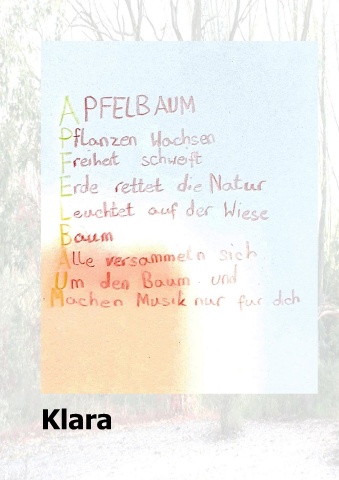 APFELBAUM
Pflanzen Wachsen
Freiheit schweift
Erde rettet die Natur
Leuchtet auf der Wiese
Baum
Alle versammeln sich
Um den Baum und
Machen Musik nur für dich
Klara